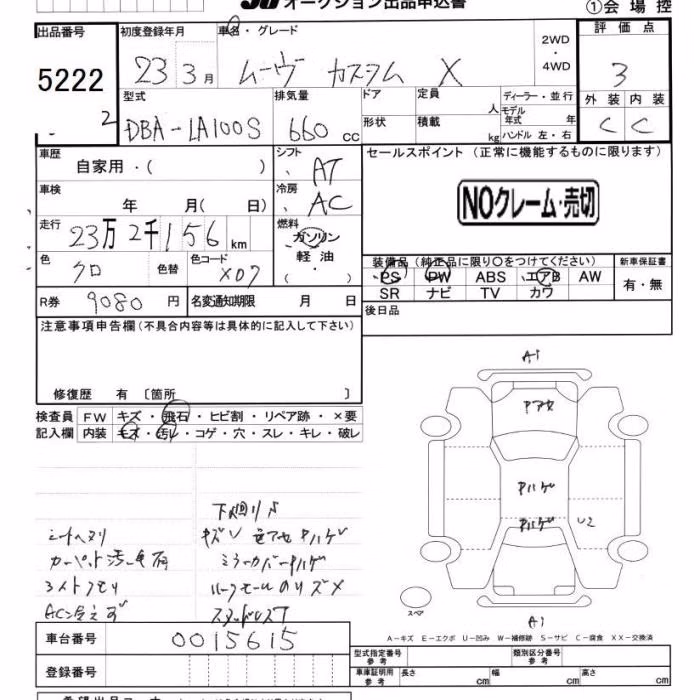 オークション出品申込書
①会場控
出品番号 初度登録年月 車名・グレード 2WD・4WD 評価点
5222 23年 3月 ムーヴ カスタム X 3
2
型式 排気量 ドア 定員 人 ディーラー・並行 外装 内装
DBA-LA100S 660cc 形状 積載 kg モデル年式 年 C C
ハンドル 左・右
車歴 自家用・( ) シフト AT セールスポイント (正常に機能するものに限ります)
車検 年 月( 日) 冷房 AC NOクレーム・売切
走行 23万2千156km 燃料 ガソリン
軽油
・
( )
色 クロ 色替 色コード X07 装備品(純正品に限り○をつけてください) 新車保証書
PS PW ABS エアB AW 有・無
SR ナビ TV カワ
R券 9080円 名変通知期限 月 日 後日品
注意事項申告欄(不具合内容等は具体的に記入して下さい)
修復歴 有 〔箇所 〕
検査員 FW キズ・飛石・ヒビ割・リペア跡・×要
記入欄 内装 キズ・汚レ・コゲ・穴・スレ・キレ・破レ
A1
ヤハゲ
ヤハゲ
U2
A1
スペア
下廻りサ
シートヘタリ
ミラーカバーヤハゲ
スタッドレス
A-キズ E-エクボ U-凹み W-補修跡 S-サビ C-腐食 XX-交換済
車台番号 0015615
型式指定番号 参考 類別区分番号 参考
登録番号 車庫証明用 参考 長さ cm 幅 cm 高さ cm
希望出品コーナー